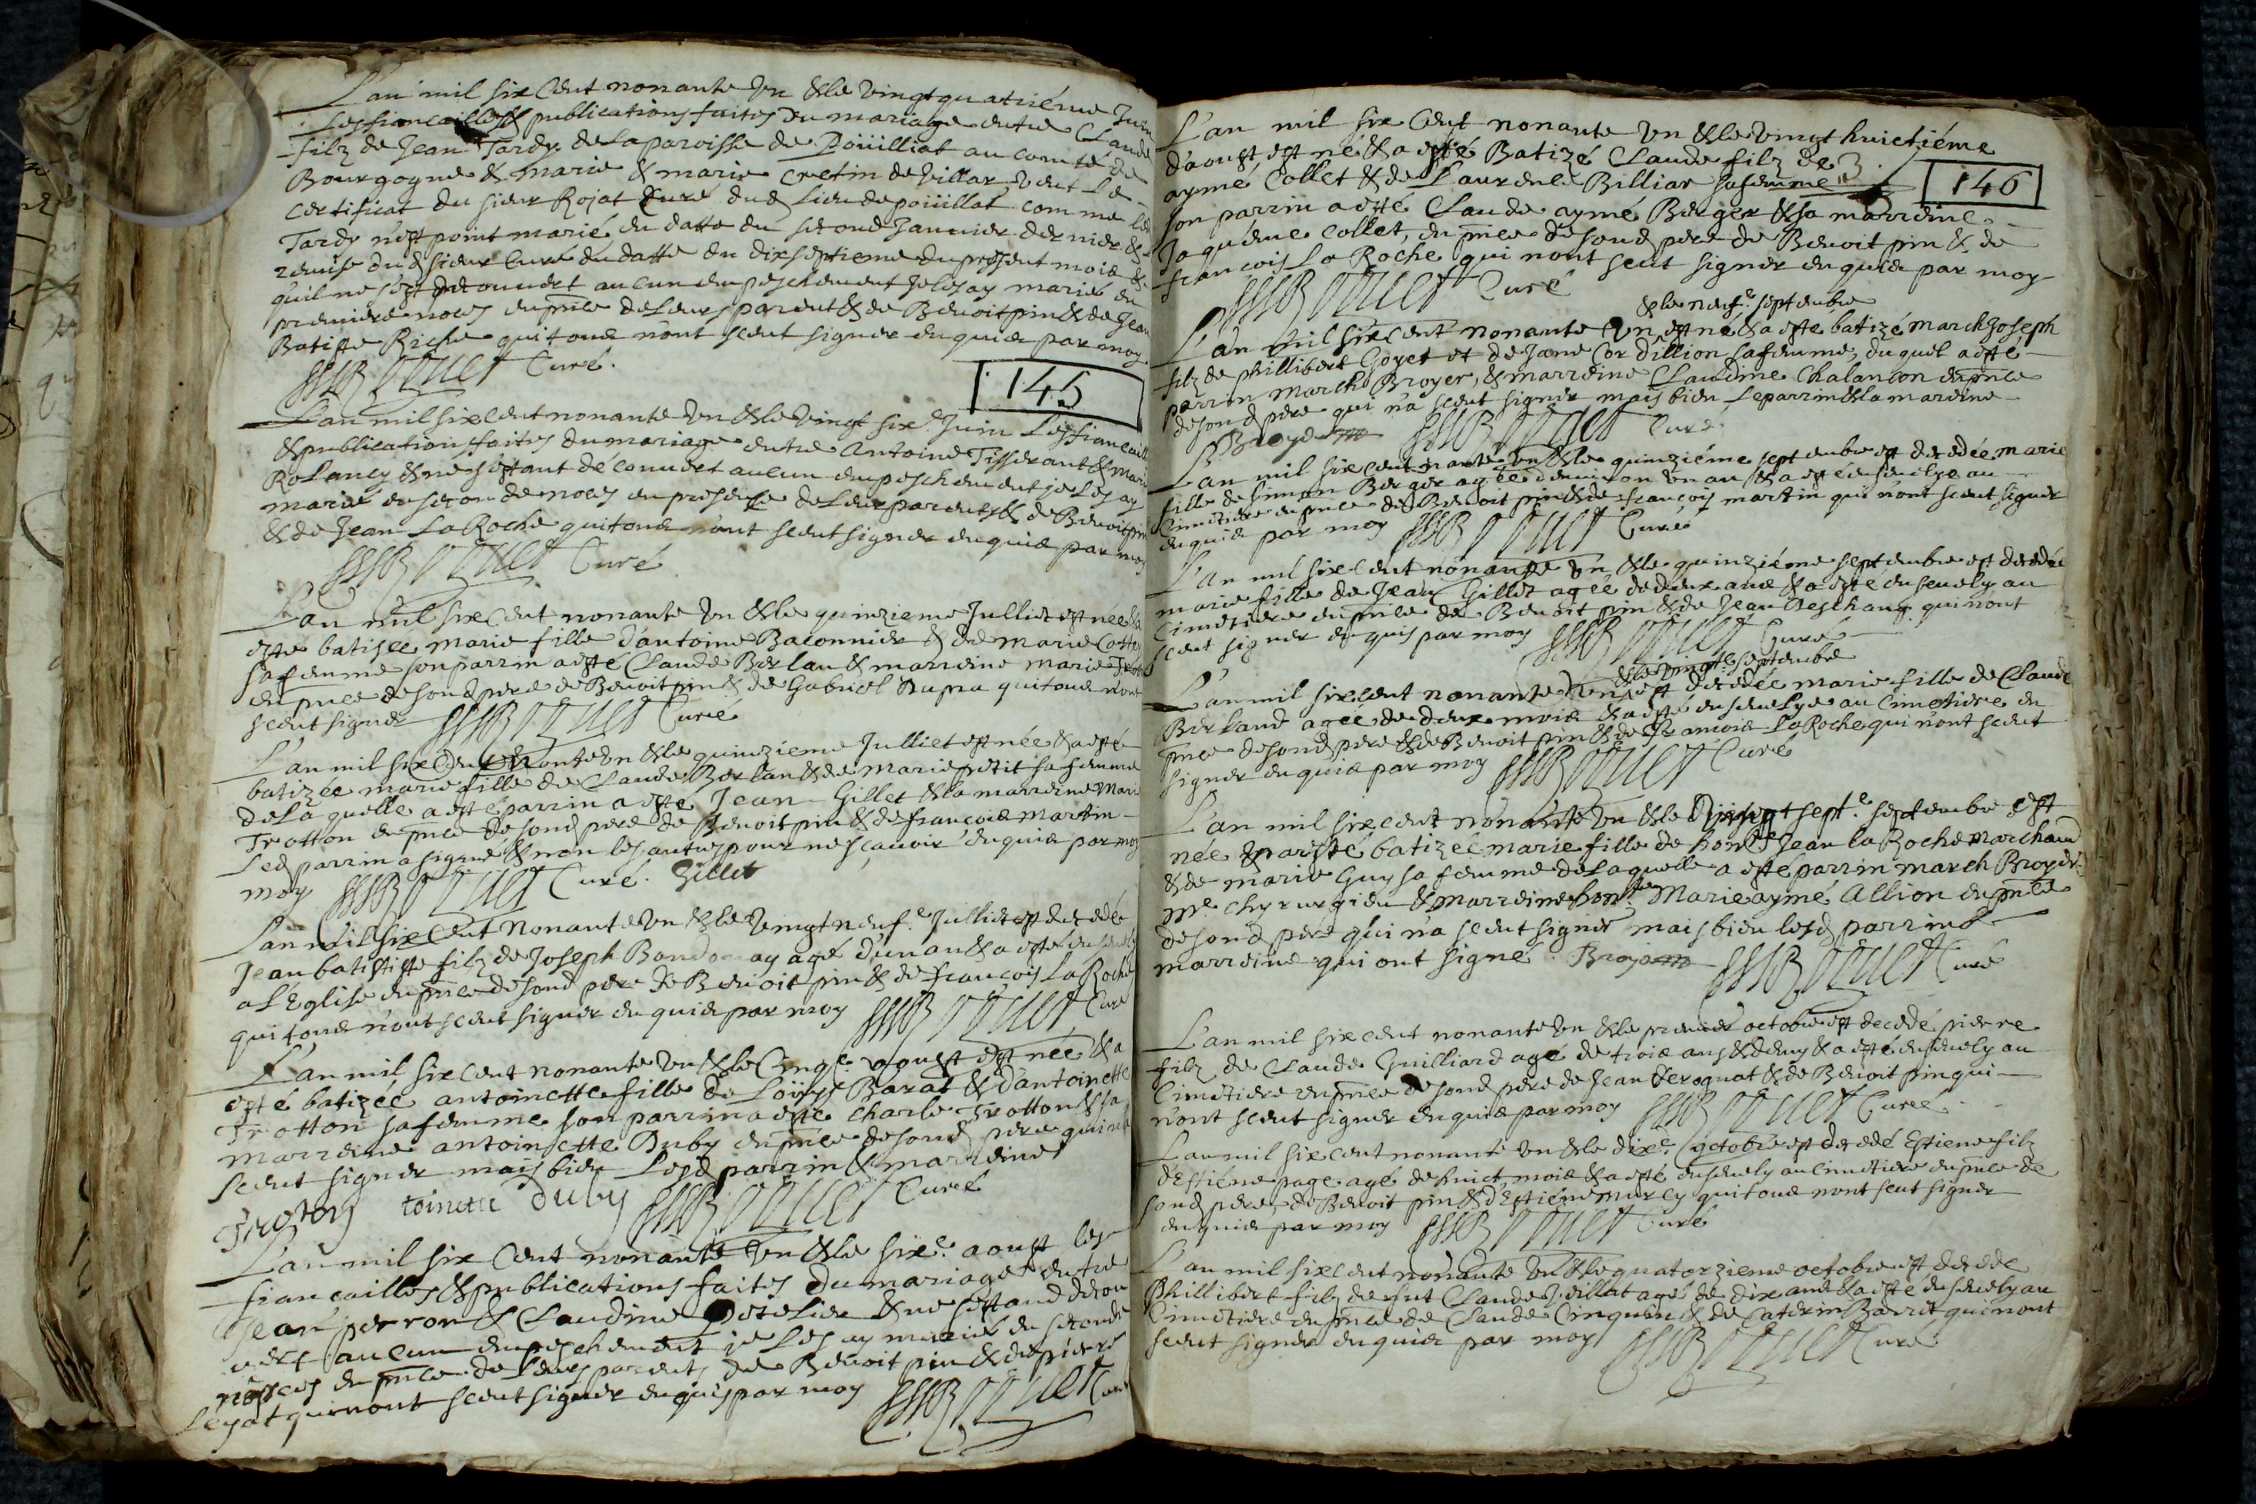 L'an mil six Cent nonante Vn & le vingt quatriéme Juin
Les fiancailles & publications faites du mariage entre Claude
filz de Jean Tardy de La paroisse de Poüilliat au comté de
Bourgogne & marie & marie Cretin de Villar, veut Le
Certificat du sieur Rojat Curé dud Lieu de poüillat comme led
Tardy n'est point marié en datte du second Januier dernier &
remise du sieur Curé en datte du dixseptieme du present mois &
qu'il ne s'est decouuert aucun empeschement Je les ay mariés en
premiere noces en pnce de Leurs parents & de Benoit pin & de Jean
Batiste Riche qui tous n'ont sceut signer enquis par moy
Curé.
145
L'an mil six Cent nonante Vn & le Vingt six.e Juin Les fiancailles
& publications faites du mariage entre Antoine Tisserant & Marie
RoLancy & ne s'estant découuert aucun empeschement je Les ay
mariés en seconde noces en presence de Leur parents & de Benoit pin
& de Jean LaRoche qui tous n'ont sceut signer enquis par moy
Curé
L'an mil six Cent nonante Vn & le quinzieme Julliet est née & a
esté batisée marie fille d'antoine Baconnier & de marie Cottey
sa femme son parrin a esté Claude Berlan & marreine marie
en pnce de sond pere de Benoit pin & de Gabriel Dupra qui tous n'ont
sceut signer Curé
L'an mil six Cent Nonte Vn & le quinzieme Julliet est née & a esté
batizée marie fille de Claude Berlan & de Marie petit sa femme
de La quelle a esté parrin a esté Jean Gillet & la marreine Marie
Trotton en pnce de sond pere de Benoit pin & de francois martin
Led parrin a signé & non les autres pour ne sçauoir enquis par moy
moy Curé. Gillet
L'an mil six Cent Nonante Vn & le Vingt neuf.e Julliet est decedé
Jean batististe filz de Joseph Bandonay agé d'un an & a esté enseuely
a l'Eglise en pnce de sond pere de Benoit pin & de françois LaRoche
qui tous n'ont sceut signer enquis par moy Curé
L'an mil six Cent nonante Vn & le Cinq.e aoust est née & a
esté batizée antoinette fille de Loüys Barat & d'antoinette
Trotton sa femme son parrin a esté Charle Trotton & sa
marreine antoinette Duby en pnce de sond pere qui n'a
sceut signer mais bien Lesd parrin & marreine
Troton toinette duby Curé
L'an mil six Cent nonante Vn & le six.e aoust les
fiancailles & publications faites du mariage entre
Jean perron & Claudine & ne s'estand decou
uert aucun empeschement je Les ay mariés en seconde
nopces en pnce de Leurs parents de Benoit pin & de pierre
Leyat qui n'ont sceut signer enquis par moy Curé
L'an mil six Cent nonante Vn & le vingt huictiéme
d'aoust est né & a esté Batizé Claude filz de
aymé Collet & de Laurence Billiar sa femme
146
son parrin a esté Claude aymé Berger & sa marreine
Jaqueme Collet, en pnce de sond pere de Benoit pin & de
francois La Roche qui n'ont sceut signer enquis par moy
Curé
& le neuf.e septembre
L'an mil six Cent nonante Vn est né & a esté batizé march Joseph
filz de phillibert Goyet et de Jane Cordillion sa femme, duquel a esté
parrin march Broyer, & marreine Claudine Chalancon en pnce
de sond pere qui n'a sceut signer mais bien Le parrin & la mareine
Broyer Curé.
L'an mil six Cent nante Vn & le quinziéme septembre est decedée marie
fille de simon Berger agée d'enuiron Vn an & a esté enseuelye au
Cimetiere en pnce de Benoit pin & de françois martin qui n'ont sceut signer
enquis par moy Curé
L'an mil six Cent nonante Vn & le quinziéme septembre est decedée
marie fille de Jean Gillet agée de deux ans & a esté enseuely au
Cimetiere en pnce de Benoit pin & de Jean Deschamp qui n'ont
sceut signer enquis par moy Curé
& le vingt.e septembre
L'an mil six Cent nonante Vn est decedée marie fille de Claude
Berland agée de deux mois & a esté enseuelye au Cimetiere en
pnce de sond pere & de Benoit pin & de francois LaRoche qui n'ont sceut
signer enquis par moy Curé
L'an mil six cent nonante Vn & le Vingt sept.e septembre est
née & a esté batizée marie fille de hon.le Jean la Roche marchand
& de marie Guy sa femme de Laquelle a esté parrin march Broyer
m.e Chyrurgien & marreine hon.le Marie aymé Allion en pnce
de sond pere qui n'a sceut signer mais bien lesd parrin &
marreine qui ont signé Broyer Curé
L'an mil six cent nonante Vn & le premier octobre est decedé pierre
filz de Claude Guilliard agé de trois ans & demy & a esté enseuely au
Cimetiere en pnce de sond pere de Jean & de Benoit pin qui
n'ont sceut signer enquis par moy Curé
L'an mil six cent nonante Vn & le dix.e octobre est decedé Estiene filz
d'Estiéne page agé de huict mois & a esté enseuely au Cimetiere en pnce de
sond pere de Benoit pin & d'Estiéne qui tous n'ont sceut signer
enquis par moy Curé
L'an mil six cent nonante Vn & le quatorzieme octobre est decedé
Phillibert filz de fut Claude agé de dix ans & a esté enseuely au
Cimetiere en pnce de Claude Cinquin & de Caterin qui n'ont
sceut signer enquis par moy Curé